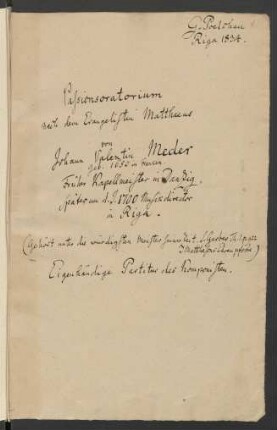 G. Poelchau
Riga 1834.
Passionsoratorium
nach dem Evangelisten Matthaeus
von
Johann Valentin Meder
geb. 1650 in
Früher Kapellmeister in Danzig,
später um d. J. 1700 Musikdirector
in Riga.
(Gehört unter die würdigsten Meister seiner Zeit. S. Gerbers
Matthesons Ehrenpforte)
Eigenhändige Partitur des Komponisten.